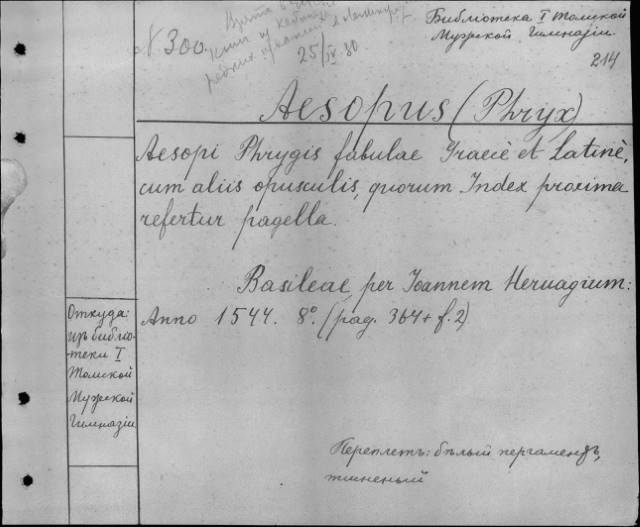 N. 300.
Взята в
книг из кабинета
редких книг в Ленинград
25/IV. 80.
Библіотека I Томской
Мужской Гимназіи.
214
Aesopus (Phryx)
Aesopi Phrygis fabulae Graecè et Latinè,
cum aliis opusculis, quorum Index proxima
refertur pagella.
Basileae, per Ioannem Heruagium:
Anno 1544. 8°. (pag. 364 + f. 2)
Откуда:
изъ библіо-
теки I
Томской
Мужской
Гимназіи
Переплетъ: бѣлый пергаментъ,
тисненый